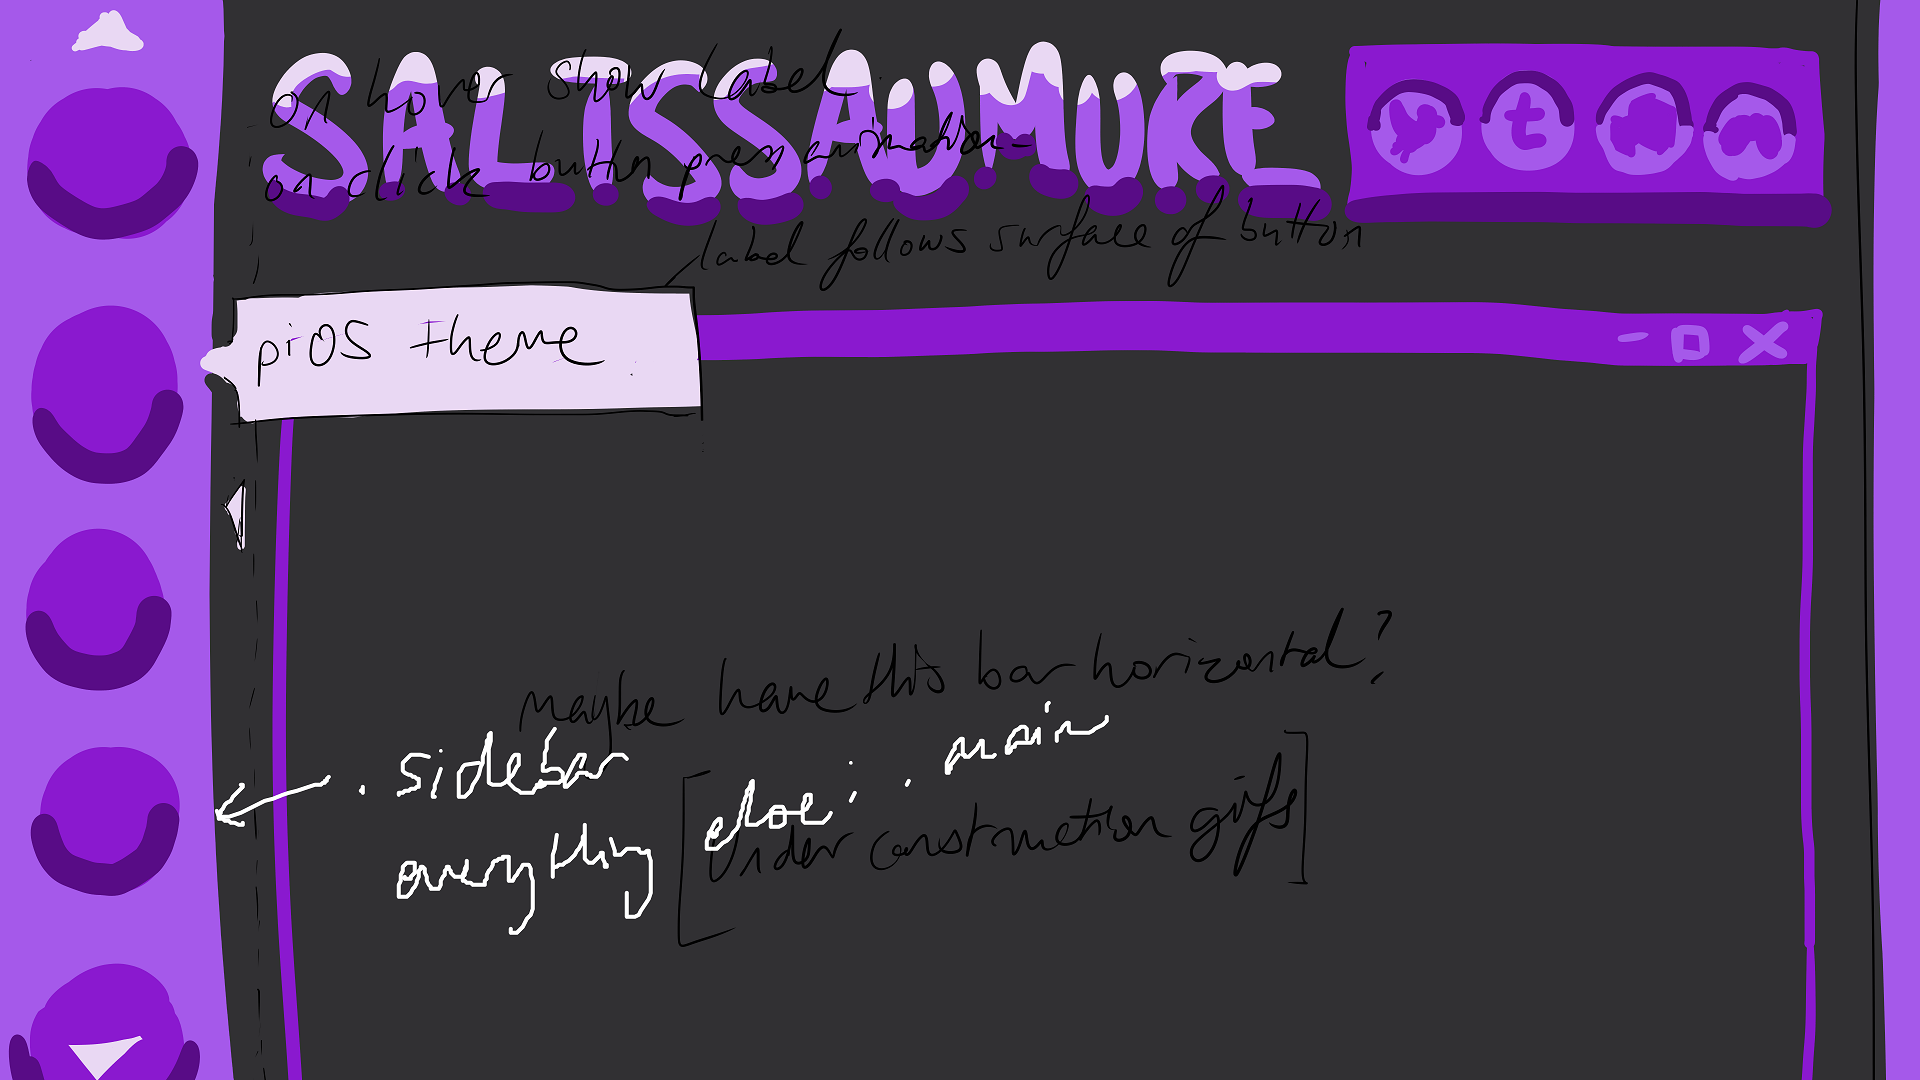 SALISSAUMURE
on hover show label
on click button press animation
label follows surface of button
piOS theme
maybe have this bar horizontal?
.sidebar
everything else: .main
[under construction gifs]